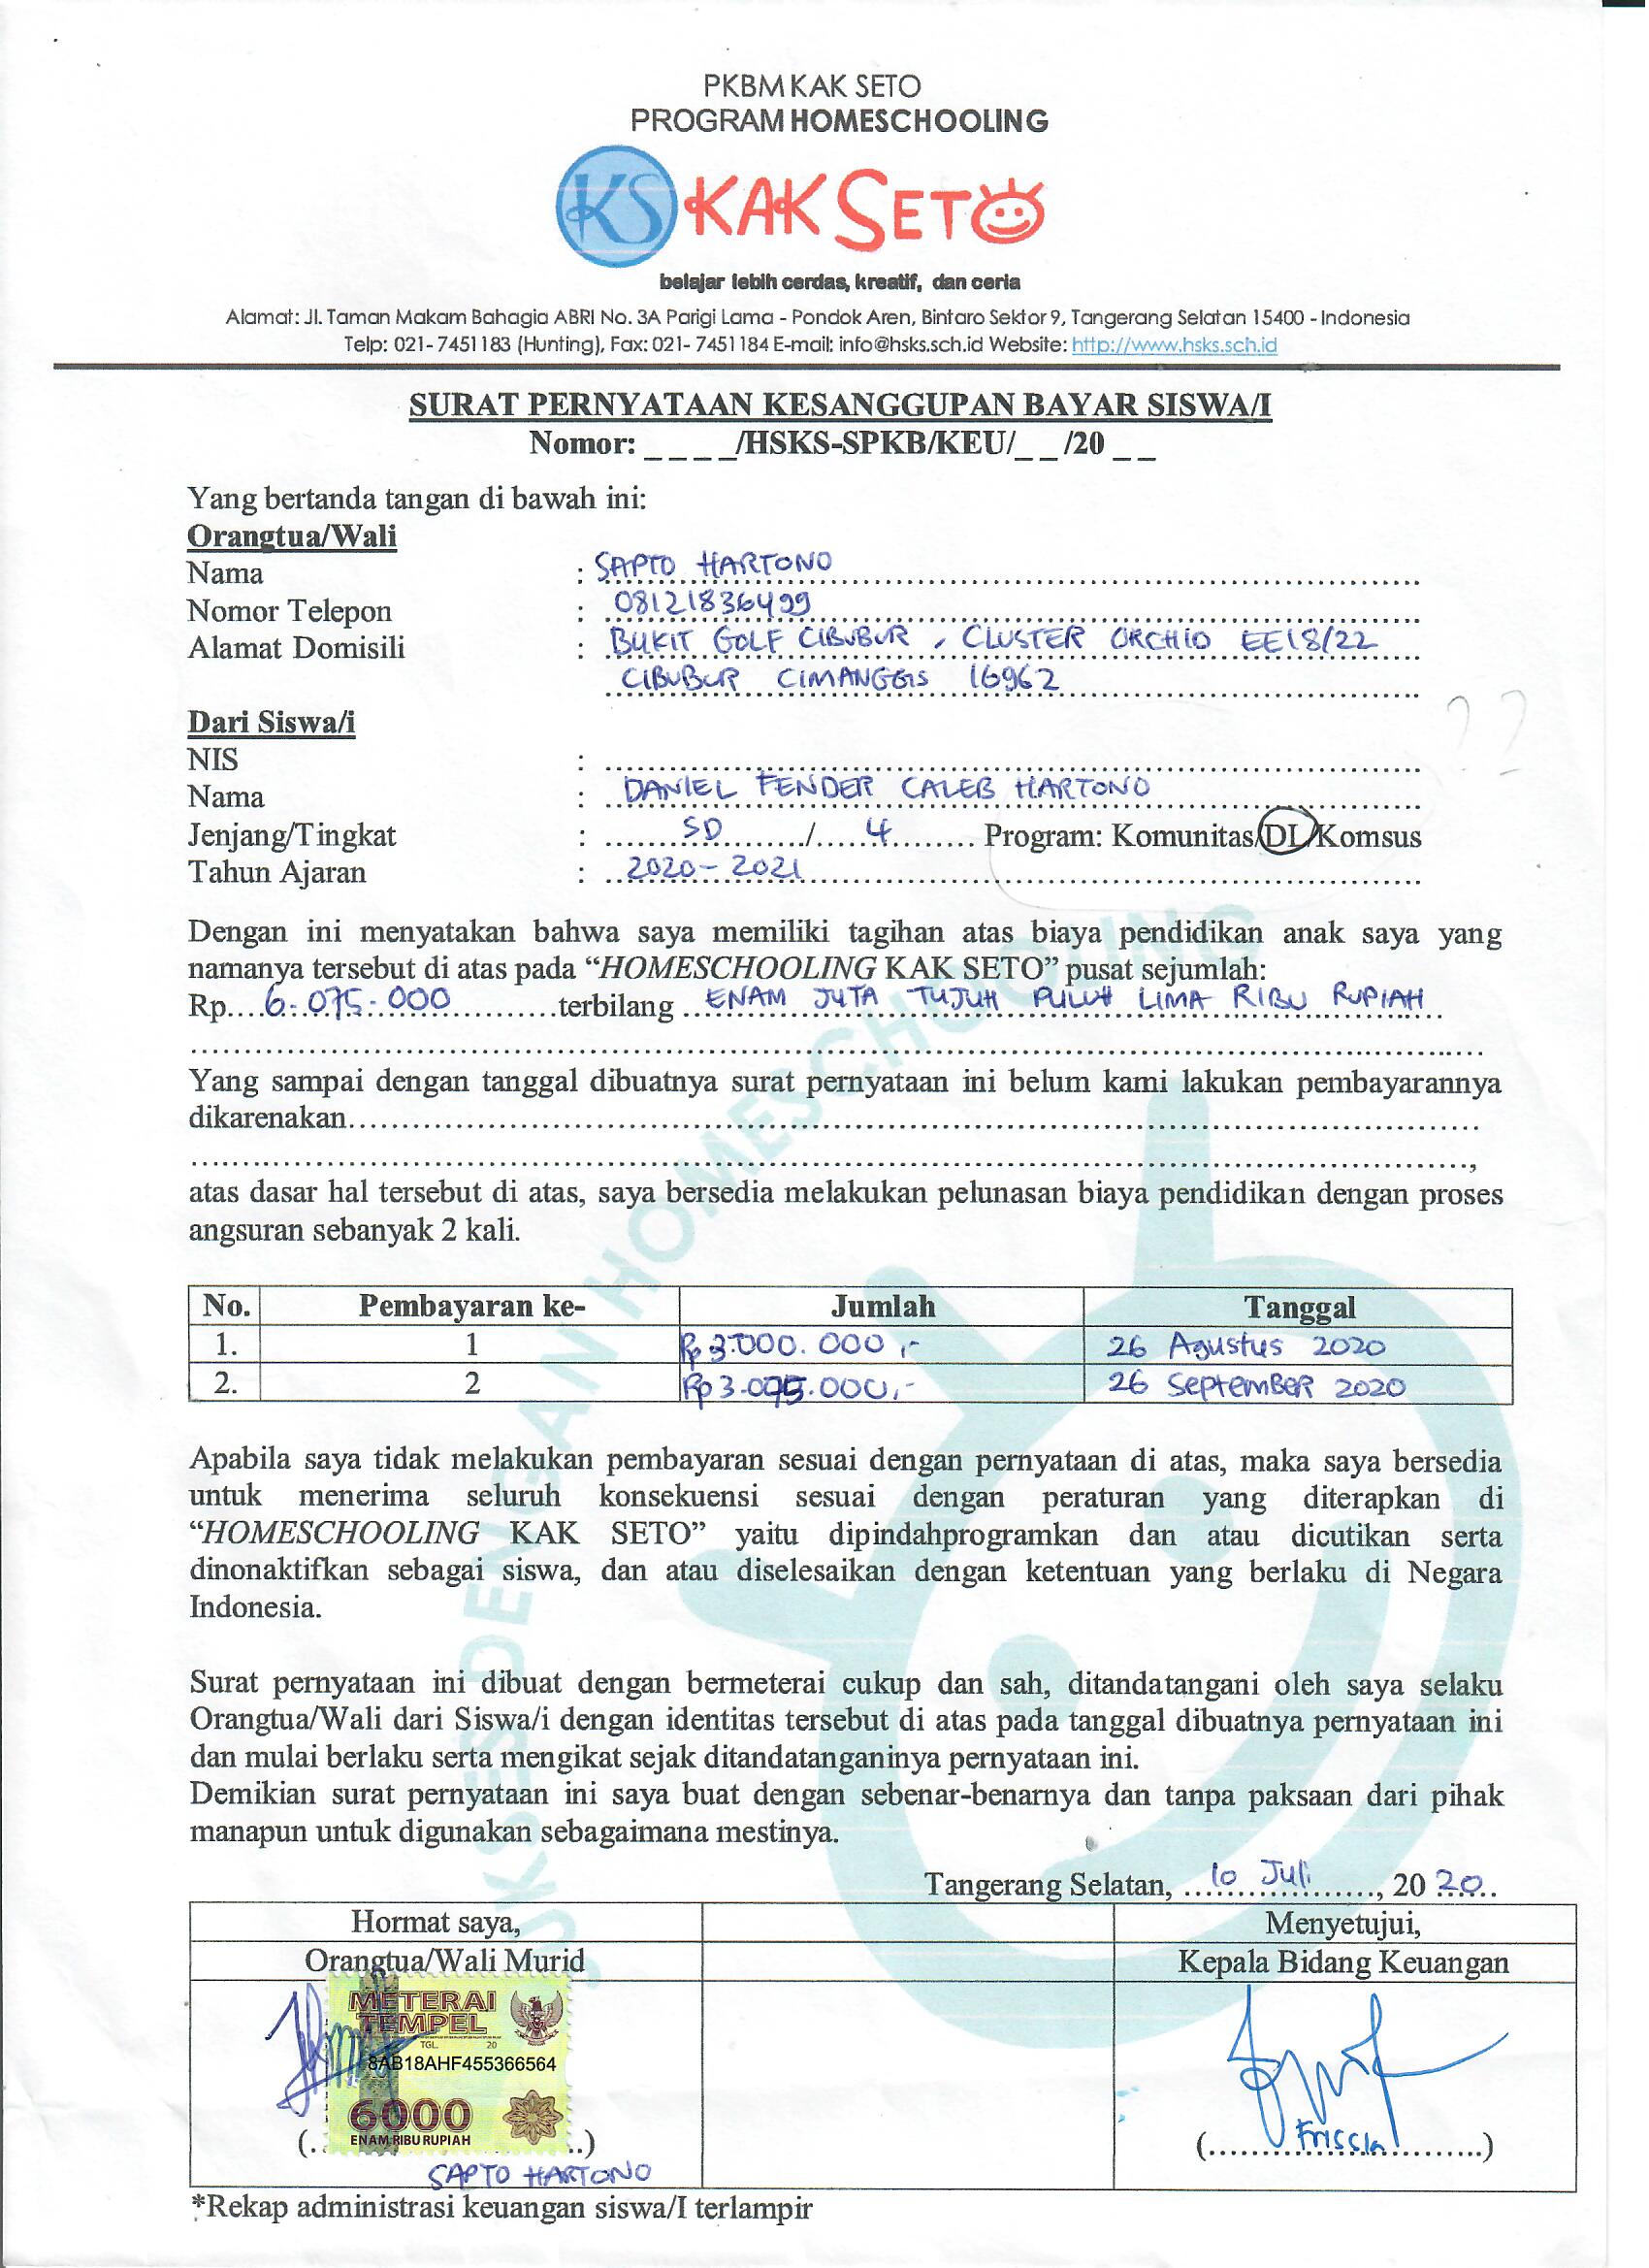 PKBM KAK SETO
PROGRAM HOMESCHOOLING
KS KAK SETO
belajar lebih cerdas, kreatif, dan ceria
Alamat: Jl. Taman Makam Bahagia ABRI No. 3A Parigi Lama - Pondok Aren, Bintaro Sektor 9, Tangerang Selatan 15400 - Indonesia
Telp: 021- 7451183 (Hunting), Fax: 021- 7451184 E-mail: info@hsks.sch.id Website: http://www.hsks.sch.id
SURAT PERNYATAAN KESANGGUPAN BAYAR SISWA/I
Nomor: _ _ _ _/HSKS-SPKB/KEU/_ _ /20 _ _
Yang bertanda tangan di bawah ini:
Orangtua/Wali
Nama : SAPTO HARTONO
Nomor Telepon : 08121836499
Alamat Domisili : BUKIT GOLF CIBUBUR, CLUSTER ORCHID EE18/22
CIBUBUR CIMANGGIS 16962
Dari Siswa/i
NIS :
Nama : DANIEL FENDER CALEB HARTONO
Jenjang/Tingkat : SD / 4 Program: Komunitas/DL/Komsus
Tahun Ajaran : 2020 - 2021
Dengan ini menyatakan bahwa saya memiliki tagihan atas biaya pendidikan anak saya yang
namanya tersebut di atas pada “HOMESCHOOLING KAK SETO” pusat sejumlah:
Rp....6.075.000..........terbilang ..ENAM JUTA TUJUH PULUH LIMA RIBU RUPIAH
Yang sampai dengan tanggal dibuatnya surat pernyataan ini belum kami lakukan pembayarannya
dikarenakan..........
atas dasar hal tersebut di atas, saya bersedia melakukan pelunasan biaya pendidikan dengan proses
angsuran sebanyak 2 kali.
No. Pembayaran ke- Jumlah Tanggal
1. 1 Rp 3.000.000,- 26 Agustus 2020
2. 2 Rp 3.075.000,- 26 September 2020
Apabila saya tidak melakukan pembayaran sesuai dengan pernyataan di atas, maka saya bersedia
untuk menerima seluruh konsekuensi sesuai dengan peraturan yang diterapkan di
“HOMESCHOOLING KAK SETO” yaitu dipindahprogramkan dan atau dicutikan serta
dinonaktifkan sebagai siswa, dan atau diselesaikan dengan ketentuan yang berlaku di Negara
Indonesia.
Surat pernyataan ini dibuat dengan bermeterai cukup dan sah, ditandatangani oleh saya selaku
Orangtua/Wali dari Siswa/i dengan identitas tersebut di atas pada tanggal dibuatnya pernyataan ini
dan mulai berlaku serta mengikat sejak ditandatanganinya pernyataan ini.
Demikian surat pernyataan ini saya buat dengan sebenar-benarnya dan tanpa paksaan dari pihak
manapun untuk digunakan sebagaimana mestinya.
Tangerang Selatan, 10 Juli, 20 20
Hormat saya, Menyetujui,
Orangtua/Wali Murid Kepala Bidang Keuangan
METERAI
TEMPEL
TGL. 20
8AB18AHF455366564
6000
ENAM RIBU RUPIAH
(..........) (....Frissia....)
SAPTO HARTONO
*Rekap administrasi keuangan siswa/I terlampir